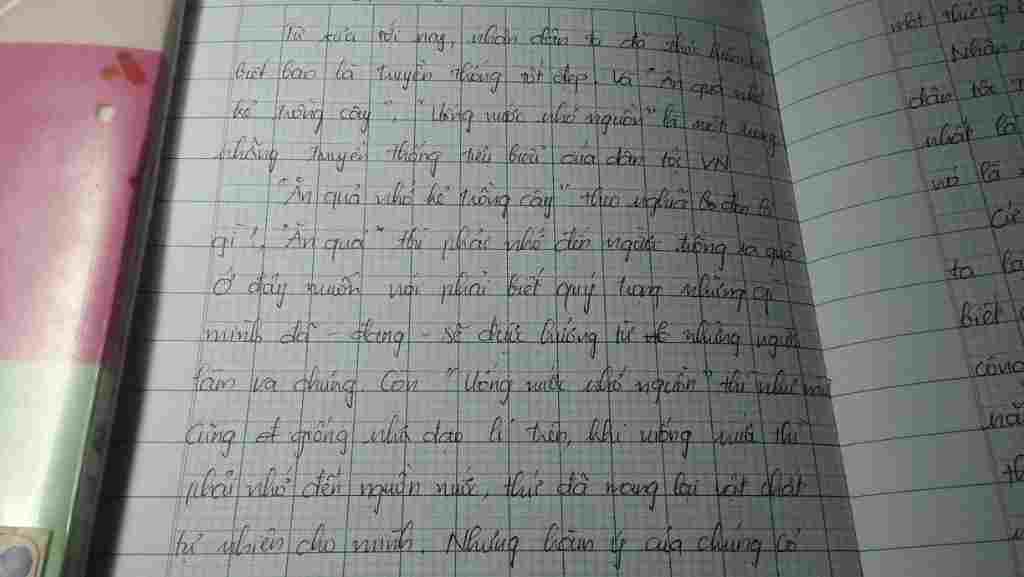 Từ xưa tới nay, nhân dân ta đã thực hiện
biết bao là truyền thống tốt đẹp, và "Ăn quả nhớ
kẻ trồng cây", "Uống nước nhớ nguồn" là một trong
những truyền thống tiêu biểu của dân tộc VN
"Ăn quả nhớ kẻ trồng cây" theo nghĩa đen là
gì? "Ăn quả" thì phải nhớ đến người trồng ra quả
Ở đây muốn nói phải biết quý trọng những gì
mình đã - đang - sẽ được hưởng từ những người
làm ra chúng. Còn "Uống nước nhớ nguồn" thì
cũng giống như đạo lí trên, khi uống nước thì
phải nhớ đến nguồn nước, thứ đã mang lại vật chất
tự nhiên cho mình. Nhưng hàm ý của chúng có
một thức
Nhân
dân tộc
nhất là
nó là
ta
biết
công